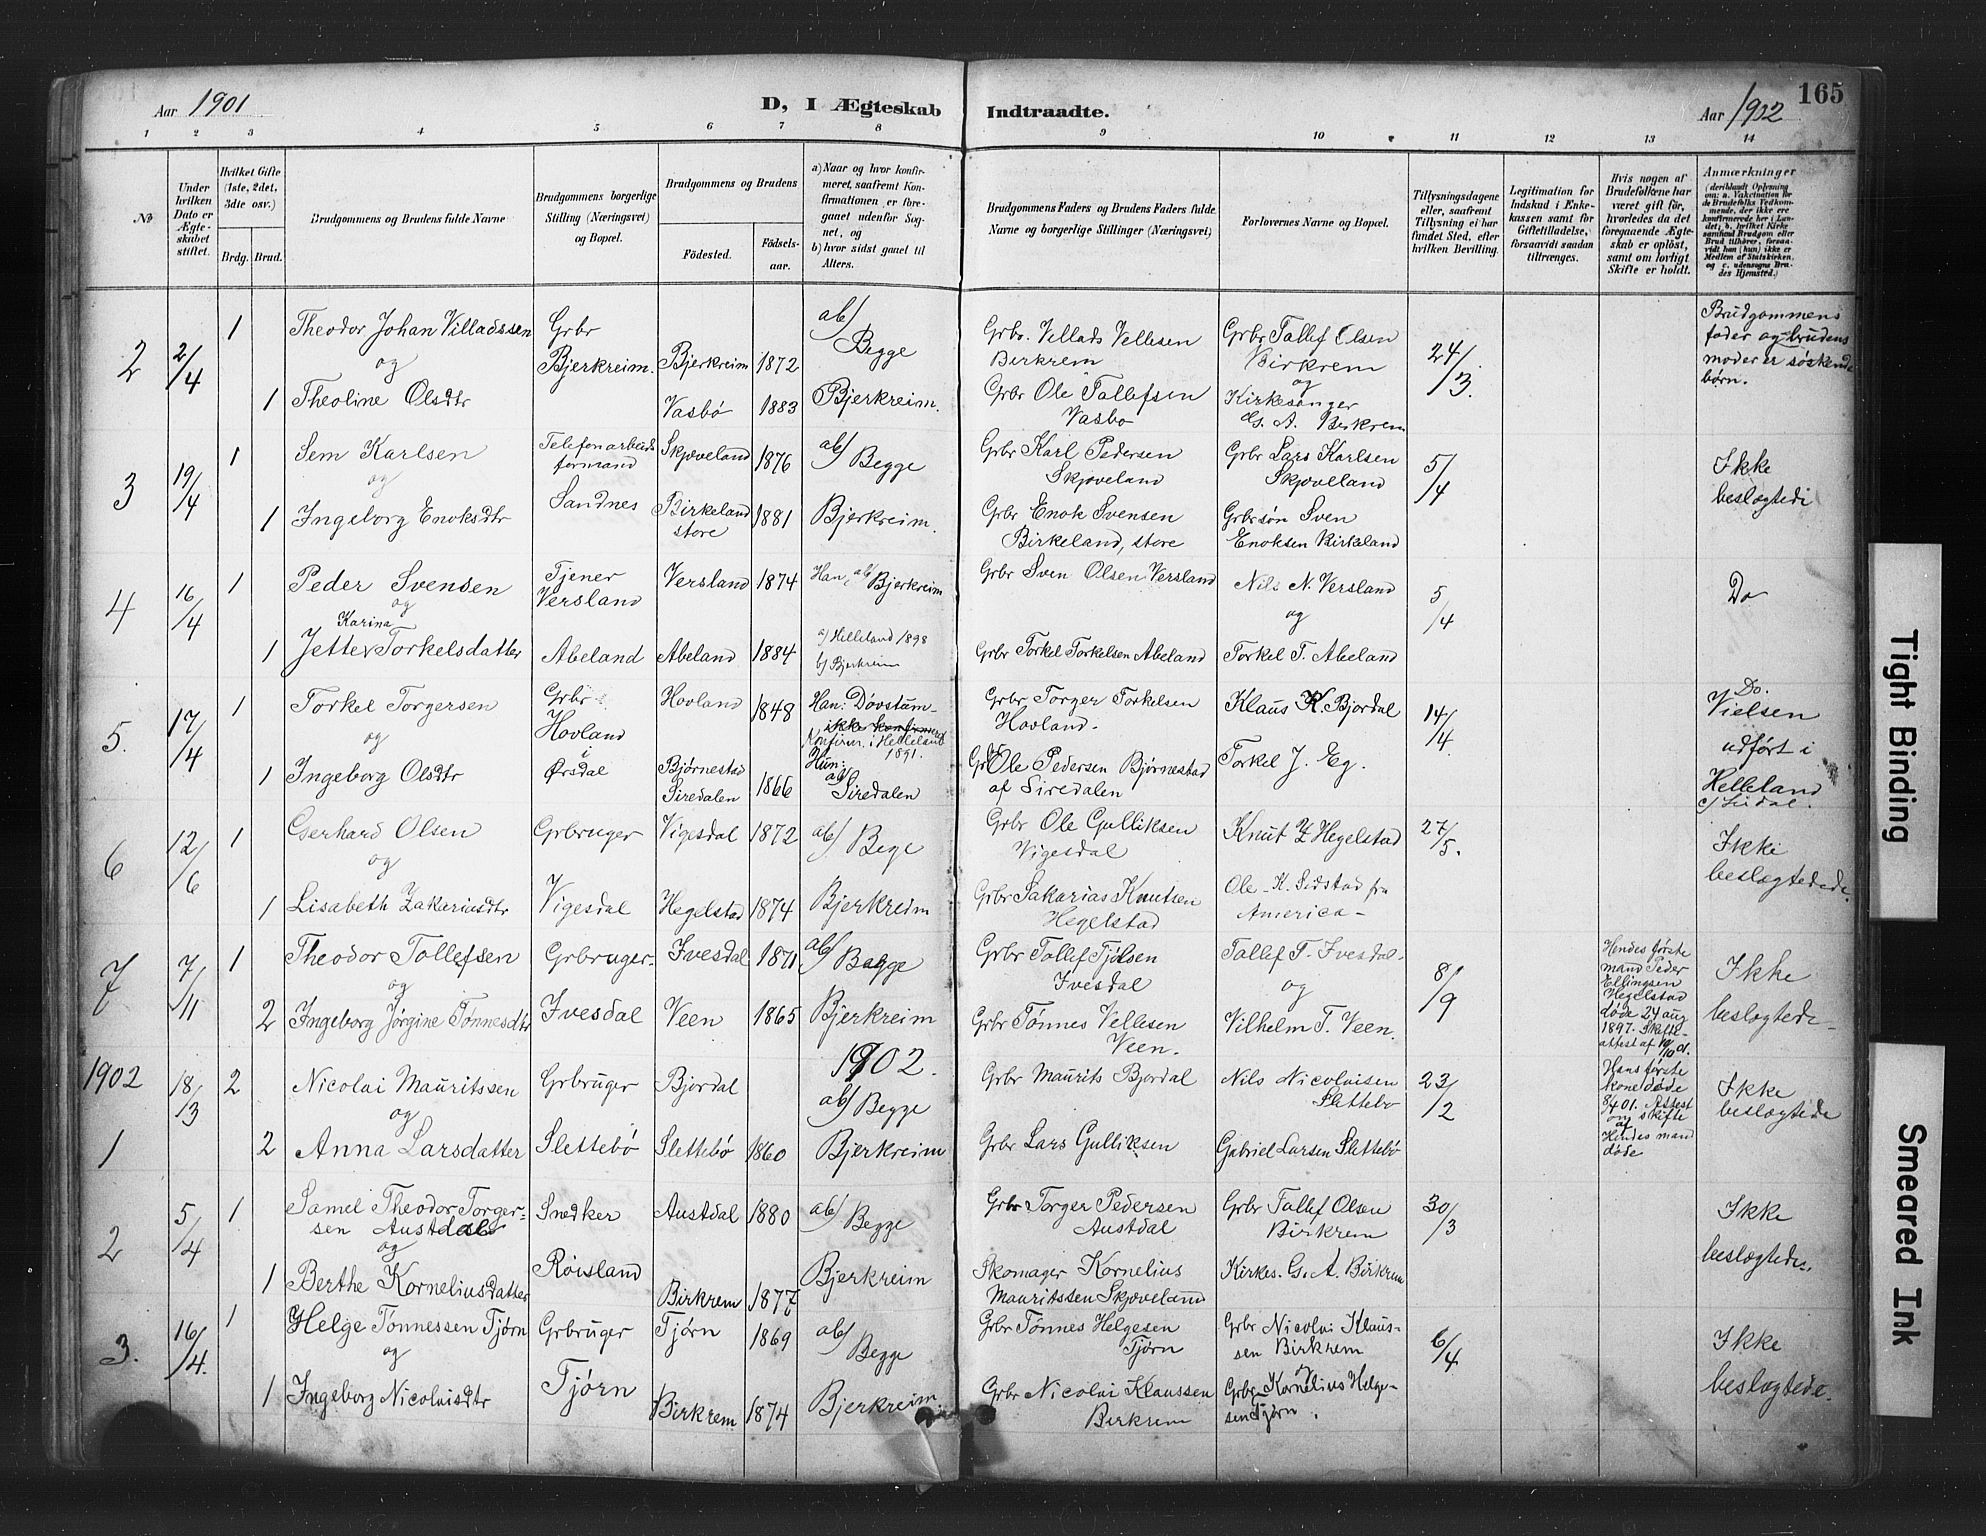 165
Aar 1901
D, I Ægteskab
Indtraadte.
Aar 1902
1 2 3 4 5 6 7 8 9 10 11 12 13 14
No
Under hvilken Dato er Ægteskabet stiftet.
Hvilket Gifte (1ste, 2det, 3dte osv.)
Brdg. Brud.
Brudgommens og Brudens fulde Navne
Brudgommens borgerlige Stilling (Næringsvei) og Bopæl.
Brudgommens og Brudens
Fødested. Fødselsaar.
a) Naar og hvor konfirmeret, saafremt Konfirmationen er foregaaet udenfor Sognet, og
b) hvor sidst gaaet til Alters.
Brudgommens Faders og Brudens Faders fulde Navne og borgerlige Stillinger (Næringsvei)
Forlovernes Navne og Bopæl.
Tillysningsdagene eller, saafremt Tillysning ei har fundet Sted, efter hvilken Bevilling.
Legitimation for Indskud i Enkekassen samt for Giftetilladelse, forsaavidt saadan tiltrænges.
Hvis nogen af Brudefolkene har været gift før, hvorledes da det foregaaende Ægteskab er opløst, samt om lovligt Skifte er holdt.
Anmærkninger
(deriblandt Oplysning om: a. Vakcination for de Brudefolks Vedkommende, der ikke ere konfirmerede her i Landet; b. hvilket Kirkesamfund Brudgom eller Brud tilhører, forsaavidt han (hun) ikke er Medlem af Statskirken, og c. udensogns Brudes Hjemsted.)
2 2/4 1 Theodor Johan Villadssen Grbr Bjerkreim. Bjerkreim 1872 ab) Begge Grbr. Vellads Vellesen Birkrem Grbr Tallef Olsen Birkrem 24/3. Brudgommens fader og brudens moder er søskende børn.
og og
1 Theoline Olsdtr Vasbø 1883 Bjerkreim. Grbr Ole Tollefsen Vasbø Kirkesanger G. A. Birkrem
3 19/4 1 Sem Karlsen Telefonarbeidsformand Skjæveland 1876 ab) Begge Grbr Karl Pedersen Skjæveland Grbr Lars Karlsen Skjæveland 5/4 Ikke beslægtede
og
1 Ingeborg Enoksdtr Sandnes Birkeland store 1881 Bjerkreim. Grbr Enok Svensen Birkeland, store Grbrsøn Sven Enoksen Birkeland
4 16/4 1 Peder Svensen Tjener Versland Versland 1874 Han, ab) Bjerkreim Grbr Sven Olsen Versland Nils N. Versland 5/4 Do
og og
Karina
1 Jette Torkelsdatter Abeland Abeland 1884 a) Helleland 1898 b) Bjerkreim Grbr Torkel Torkelsen Abeland Torkel T. Abeland
5. 17/4 1 Torkel Torgersen Grbr Hovland i Hovland 1848 Han: Døvstum- ikke konfirmeret Konfirm. i Helleland 1891. Grbr Torger Torkelsen Hovland. Klaus K. Bjordal 14/4 Do. Vielsen udført i Helleland
og
1 Ingeborg Olsdtr Ørsdal Bjørnestad Siredalen 1866 Hun: ab) Siredalen Grbr Ole Pedersen Bjørnestad af Siredalen Torkel J. Eg. c/ Sirdal.
6 12/6 1 Gerhard Olsen Grbruger Vigesdal 1872 ab) Bege Grbr Ole Gulliksen Vigesdal Knut Z Hegelstad 27/5. Ikke beslægtede
og
1 Lisabeth Zakariasdtr Vigesdal Hegelstad 1874 Bjerkreim Grbr Sakarias Knutsen Hegelstad Ole K. Sidstad fra America
7 7/11 1 Theodor Tollefsen Grbruger Ivesdal 1871 ab) Begge Grbr Tollef Tjølsen Ivesdal Tallef T. Ivesdal 8/9 Hendes første mand Peder Ellingsen Hegelstad døde 24 aug 1897. Skifteattest af 19/10 01. Ikke beslægtede
og og
2 Ingeborg Jørgine Tønnesdtr Ivesdal Veen 1865 Bjerkreim Grbr Tønnes Vellesen Veen. Vilhelm T. Veen.
1902.
1902 18/13 2 Nicolai Mauritssen Grbruger Bjordal ab) Begge Grbr Maurits Bjordal Nils Nicolaisen Slettebø 23/2 Hans første kone døde 8/4 01. Attest om skifte af Hendes mand døde Ikke beslægtede
og
1 2 Anna Larsdatter Slettebø Slettebø 1860 Bjerkreim Grbr Lars Gulliksen Gabriel Larsen Slettebø
2 5/4 1 Samel Theodor Torgersen Austdal Snedker Austdal 1880 ab) Begge Grbr Torger Pedersen Austdal Grbr Tallef Olsen Birkrem 30/3 Ikke beslægtede.
og
1 Berthe Kornelius datter Røisland Birkrem 1877 Bjerkreim Skomager Kornelius Mauritssen Skjæveland Kirkes. G. A. Birkrem
3. 16/4. 1 Helge Tønnessen Tjørn Grbruger Tjørn 1869 ab) Begge Grbr Tønnes Helgesen Tjørn Grbr Nicolai Klaussen Birkrem 6/4 Ikke beslægtede.
og og
1 Ingeborg Nicolaisdtr Tjørn Birkrem 1874 Bjerkreim. Grbr Nicolai Klaussen Birkrem Grbr Kornelius Helgesen Tjørn.
Tight Binding
Smeared Ink